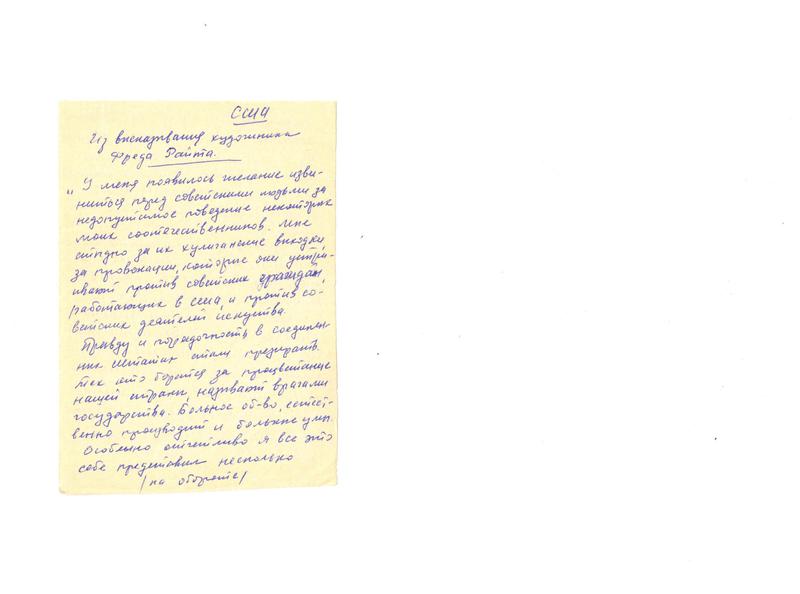 США
Из высказывания художника
Фреда Райта.
"У меня появилось желание изви-
ниться перед советскими людьми за
недопустимое поведение некоторых
моих соотечественников. Мне
стыдно за их хулиганские выходки,
за провокации, которые они устра-
ивают против советских граждан,
работающих в США, и против со-
ветских деятелей искусства.
Правду и порядочность в Соединен-
ных Штатах стали презирать.
Тех кто борется за процветание
нашей страны, называют врагами
государства. Больное об-во, естест-
венно производит и больные умы.
Особенно отчетливо я все это
себе представил несколько
/на обороте/